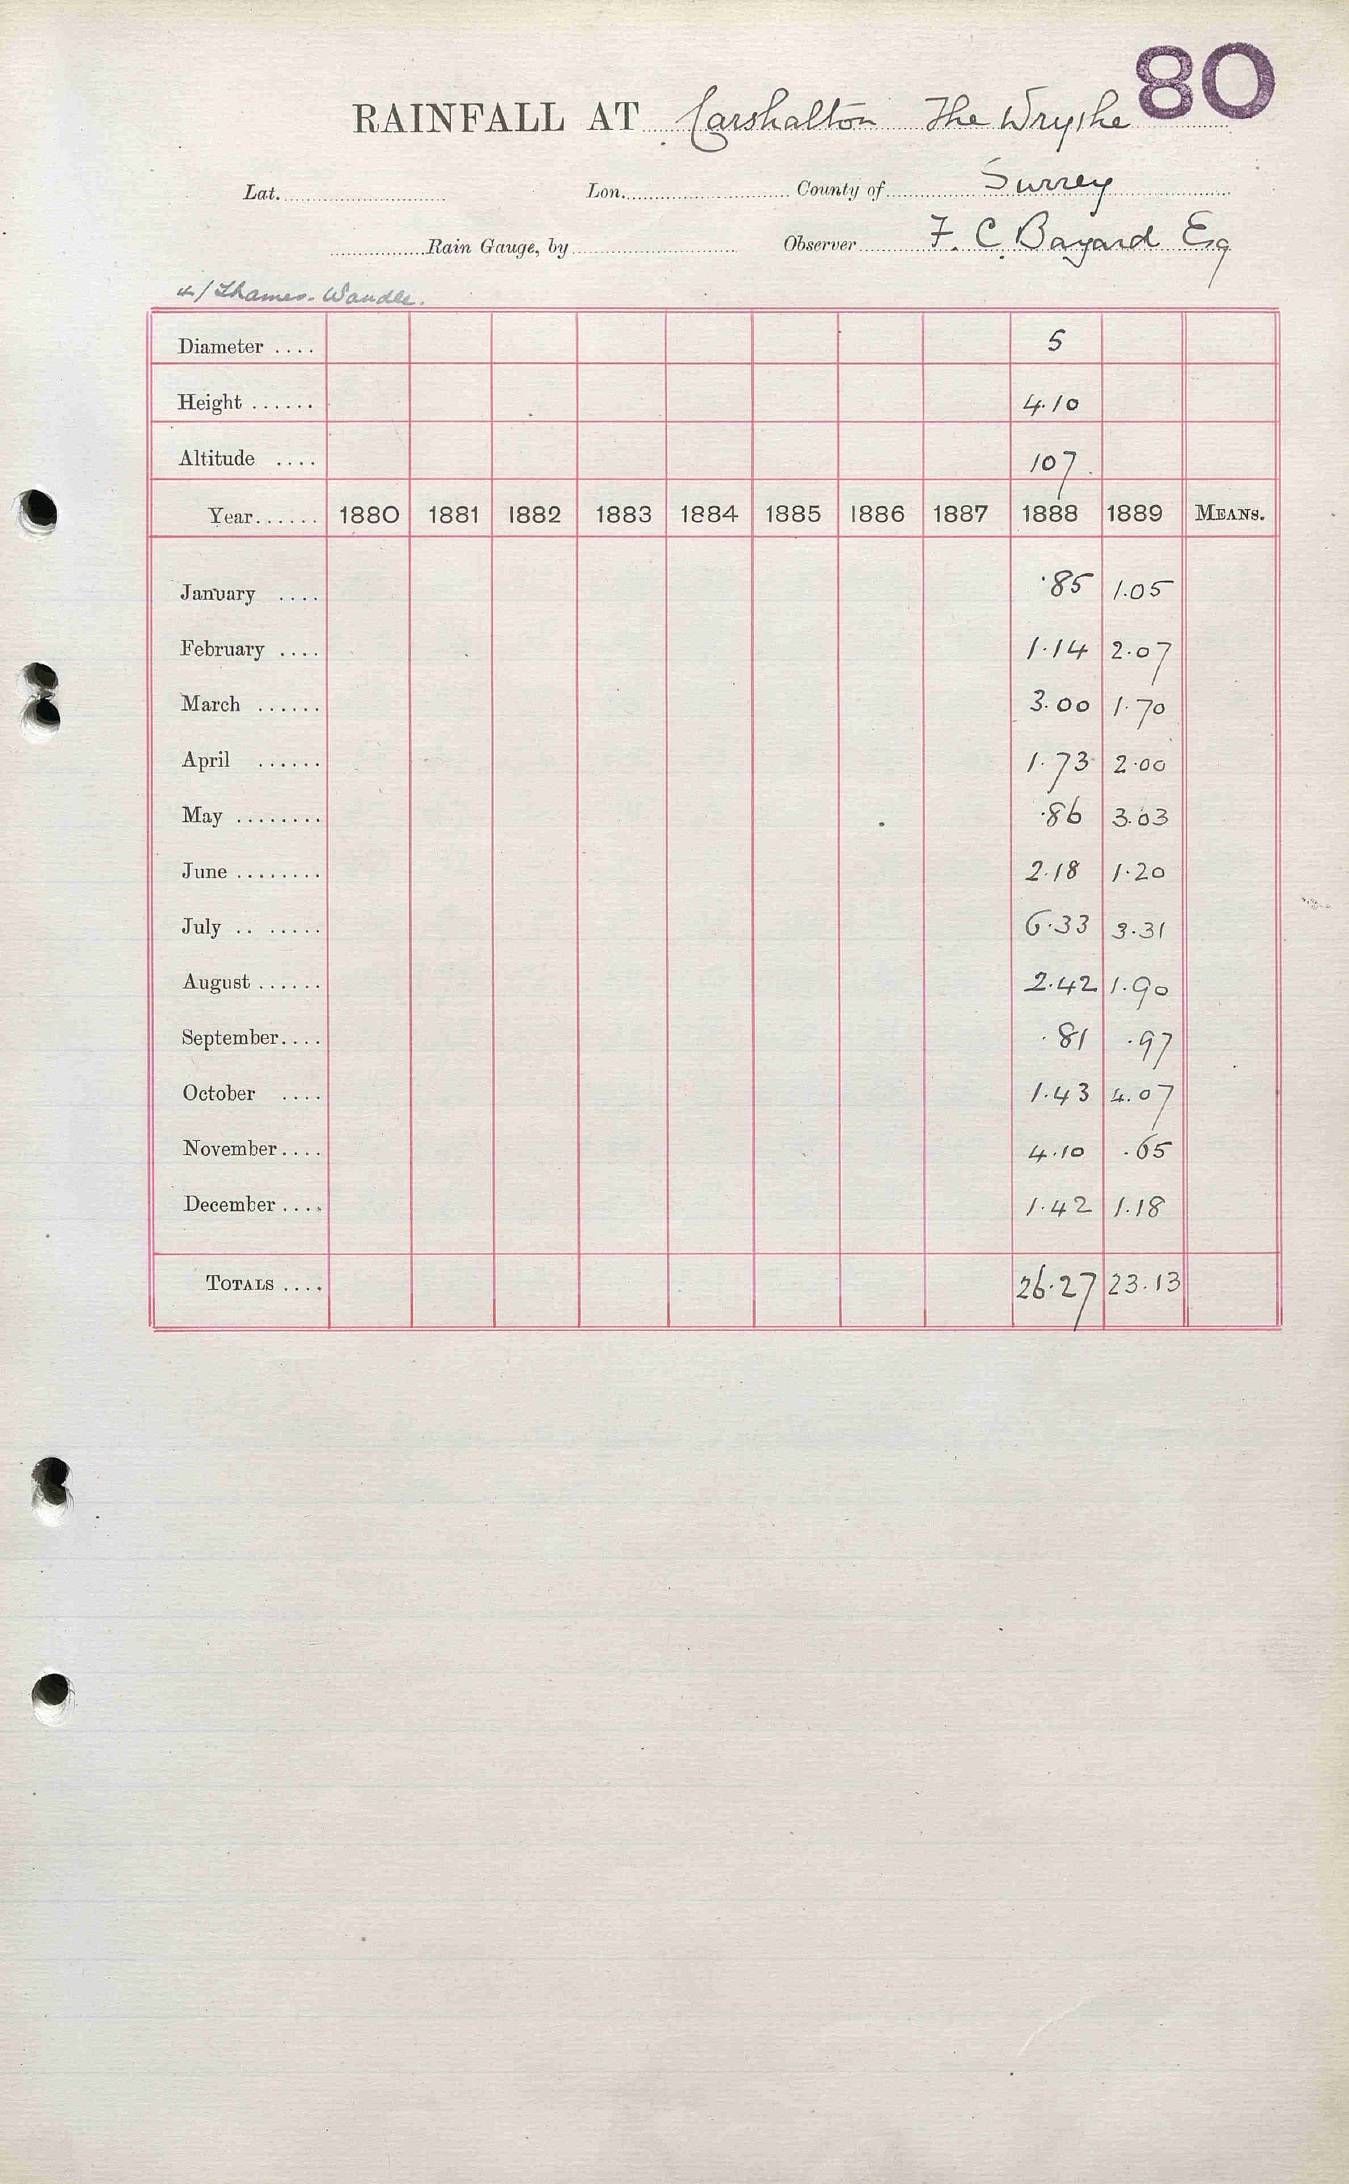 80
RAINFALL AT Carshalton The Wrythe
Lat. Lon. County of Surrey
Rain Gauge, by Observer F. C. Bayard Esq
4/ Thames-Wandle.
Diameter .... 5
Height ...... 4.10
Altitude .... 107
Year...... 1880 1881 1882 1883 1884 1885 1886 1887 1888 1889 MEANS.
January .... .85 1.05
February .... 1.14 2.07
March ...... 3.00 1.70
April ...... 1.73 2.00
May ........ .86 3.03
June ........ 2.18 1.20
July .. ..... 6.33 3.31
August ...... 2.42 1.90
September.... .81 .97
October .... 1.43 4.07
November.... 4.10 .65
December .... 1.42 1.18
TOTALS .... 26.27 23.13